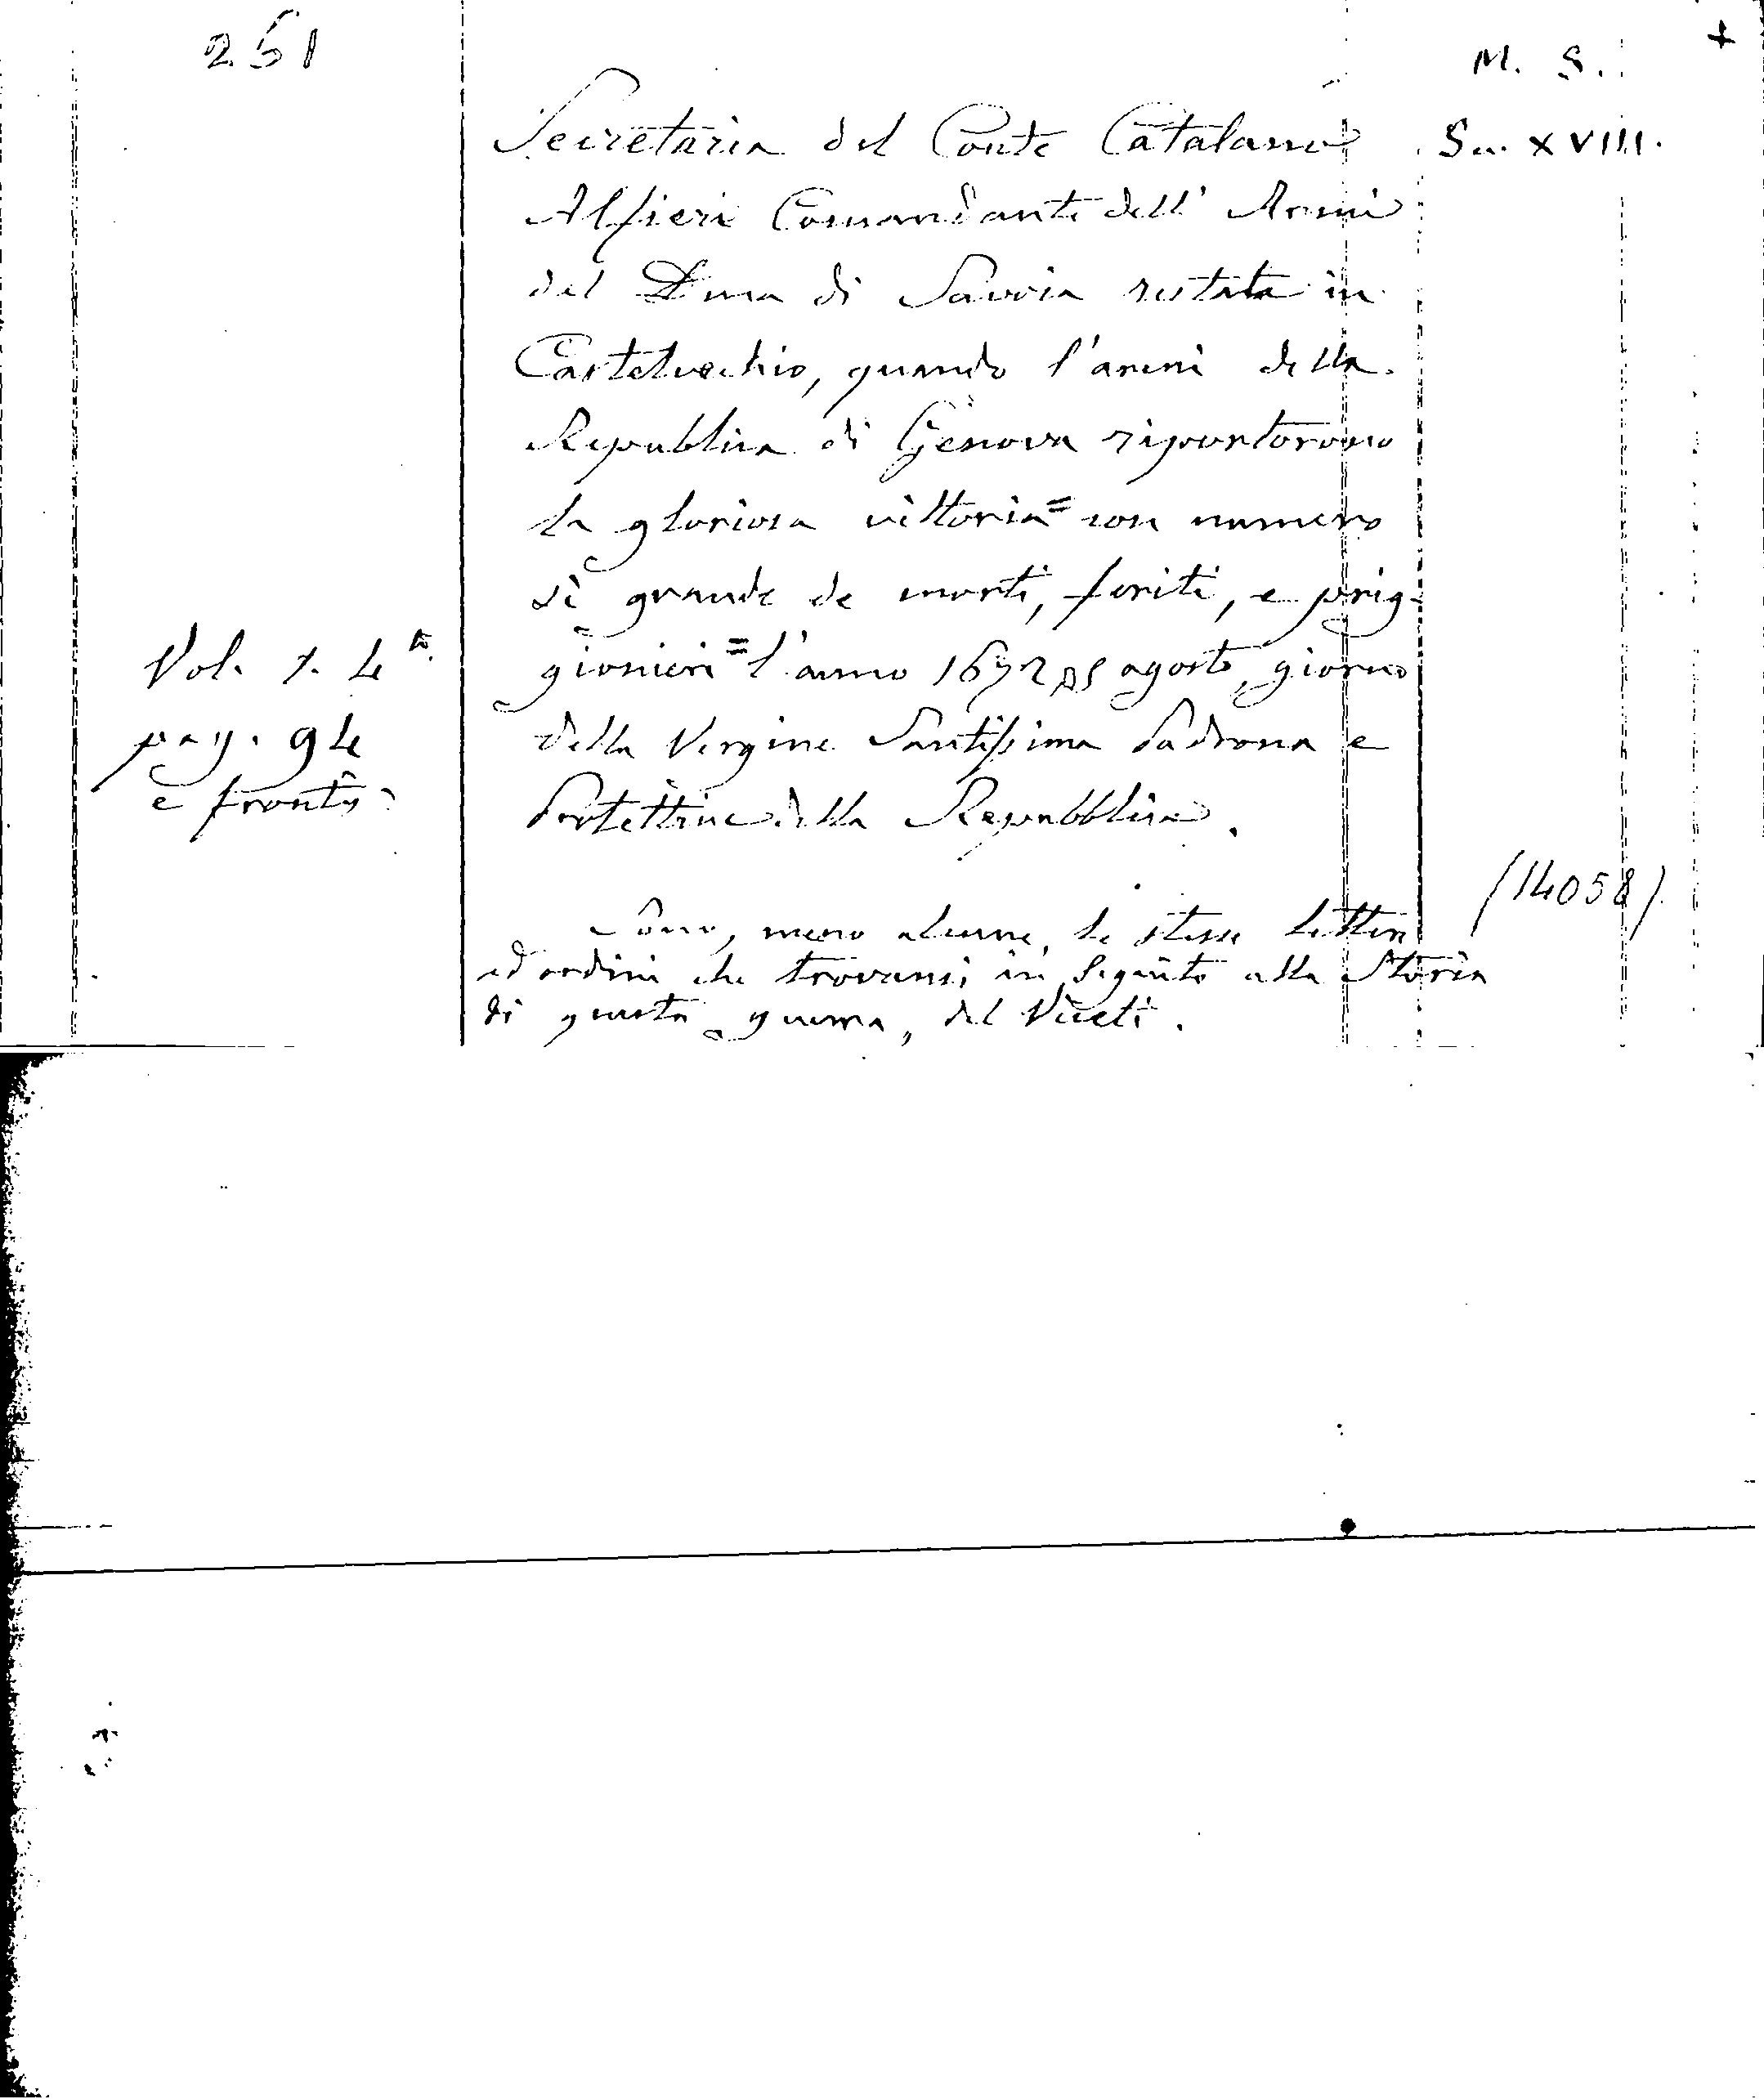 251
M. S. +
Sec. XVIII.
Secretaria del Conte Catalano
Alfieri Comandante dell' Armi
del Duca di Savoia restata in
Castelvechio, quando l'armi della
Republica di Genova riportorono
la gloriosa vittoria = con numero
sì grande de morti, feriti, e prig-
gionieri = l'anno 1672 a 5 agosto, giorno
della Vergine Santissima Padrona e
Protettrice della Repubblica.
Vol. 1. 4°.
pag. 94
e frontº
(14058).
Sono, meno alcune, le stesse lettere
ed ordini che trovansi in seguito alla Storia
di questa guerra, del Viceti.